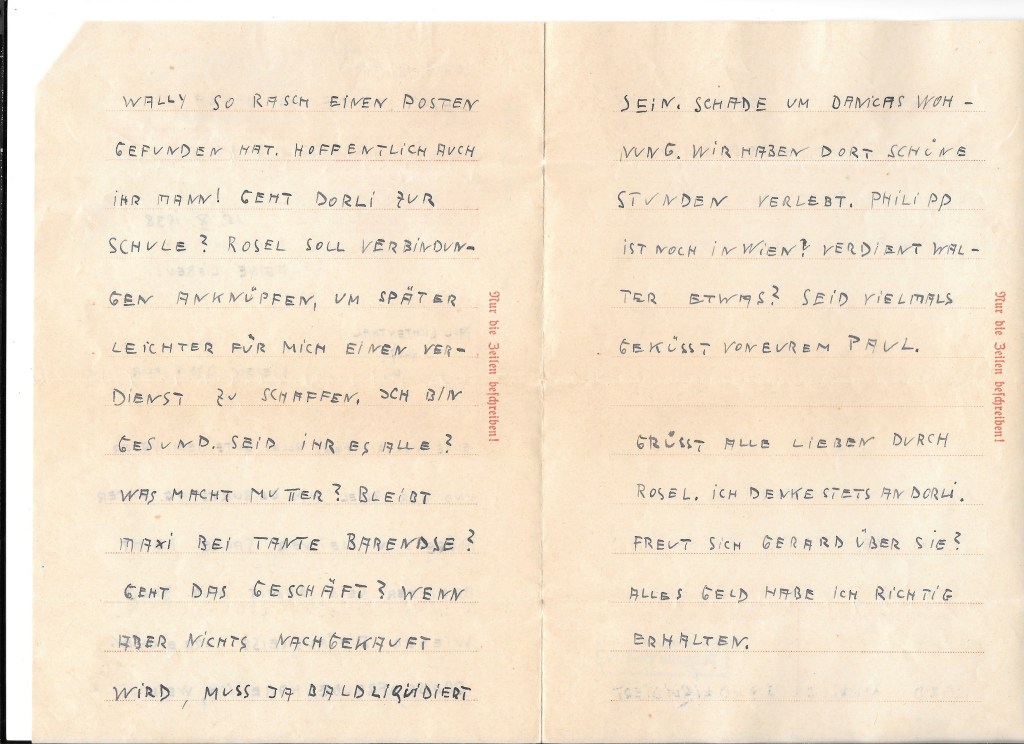 WALLY SO RASCH EINEN POSTEN
GEFUNDEN HAT. HOFFENTLICH AUCH
IHR MANN! GEHT DORLI ZUR
SCHULE? ROSEL SOLL VERBINDUN-
GEN ANKNÜPFEN, UM SPÄTER
LEICHTER FÜR MICH EINEN VER-
DIENST ZU SCHAFFEN. ICH BIN
GESUND. SEID IHR ES ALLE?
WAS MACHT MUTTER? BLEIBT
MAXI BEI TANTE BARENDSE?
GEHT DAS GESCHÄFT? WENN
ABER NICHTS NACHGEKAUFT
WIRD, MUSS JA BALD LIQUIDIERT
Nur die Zeilen beschreiben!
SEIN. SCHADE UM DANICAS WOH-
NUNG. WIR HABEN DORT SCHÖNE
STUNDEN VERLEBT. PHILIPP
IST NOCH IN WIEN? VERDIENT WAL-
TER ETWAS? SEID VIELMALS
GEKÜSST VON EUREM PAUL.
GRÜSST ALLE LIEBEN DURCH
ROSEL. ICH DENKE STETS AN DORLI.
FREUT SICH GERARD ÜBER SIE?
ALLES GELD HABE ICH RICHTIG
ERHALTEN.
Nur die Zeilen beschreiben!